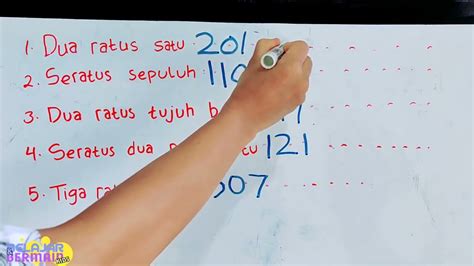 1. Dua ratus satu 201
2. Seratus sepuluh 110
3. Dua ratus tujuh
4. Seratus dua 121
5. Tiga 307
BELAJAR
BERMAIN
KIDS